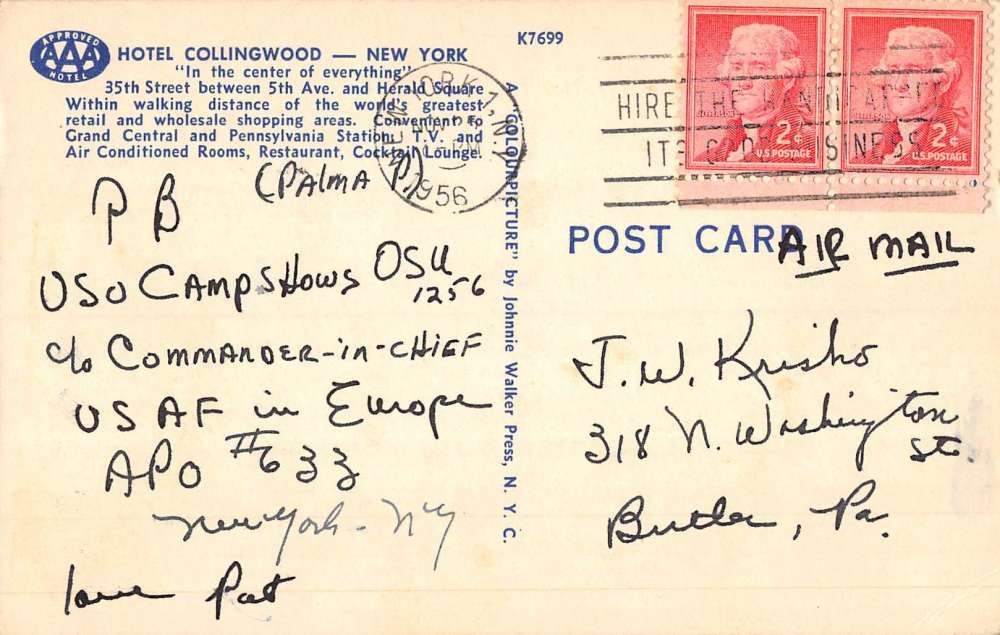 APPROVED
AAA
HOTEL
HOTEL COLLINGWOOD — NEW YORK
"In the center of everything"
35th Street between 5th Ave. and Herald Square
Within walking distance of the world's greatest
retail and wholesale shopping areas. Convenient to
Grand Central and Pennsylvania Station. T.V. and
Air Conditioned Rooms, Restaurant, Cocktail Lounge.
(PAlmA P.)
P B
USO CAMPSHOWS OSU
1256
c/o COMMANDER-IN-CHIEF
USAF in Europe
APO #633
New York - NY
love Pat
A "COLOURPICTURE" by Johnnie Walker Press, N. Y. C.
K7699
NEW YORK 1, N.Y.
PM
1956
HIRE THE HANDICAPPED
ITS GOOD BUSINESS
2¢
U.S. POSTAGE
2¢
U.S. POSTAGE
POST CARD
AIR MAIL
J. W. Krisho
318 N. Washington
St.
Butler, Pa.